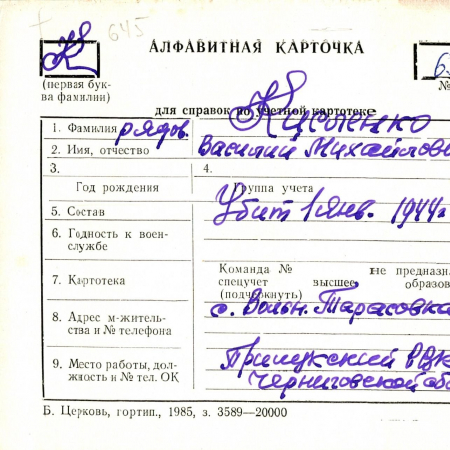 К 645
АЛФАВИТНАЯ КАРТОЧКА
(первая бук-
ва фамилии)
№
для справок по учетной картотеке
1. Фамилия рядов.
2. Имя, отчество Василий Михайлови
3. 4.
Год рождения Группа учета
5. Состав Убит 1 янв. 1944г
6. Годность к воен-
службе
7. Картотека
Команда № не предназн.
спецучет высшее образов
(подчеркнуть)
8. Адрес м-житель-
ства и № телефона
с. Вольн. Тарасовка
9. Место работы, дол-
жность и № тел. ОК
Прилукский РВК
Черниговской об
Б. Церковь, гортип., 1985, з. 3589—20000